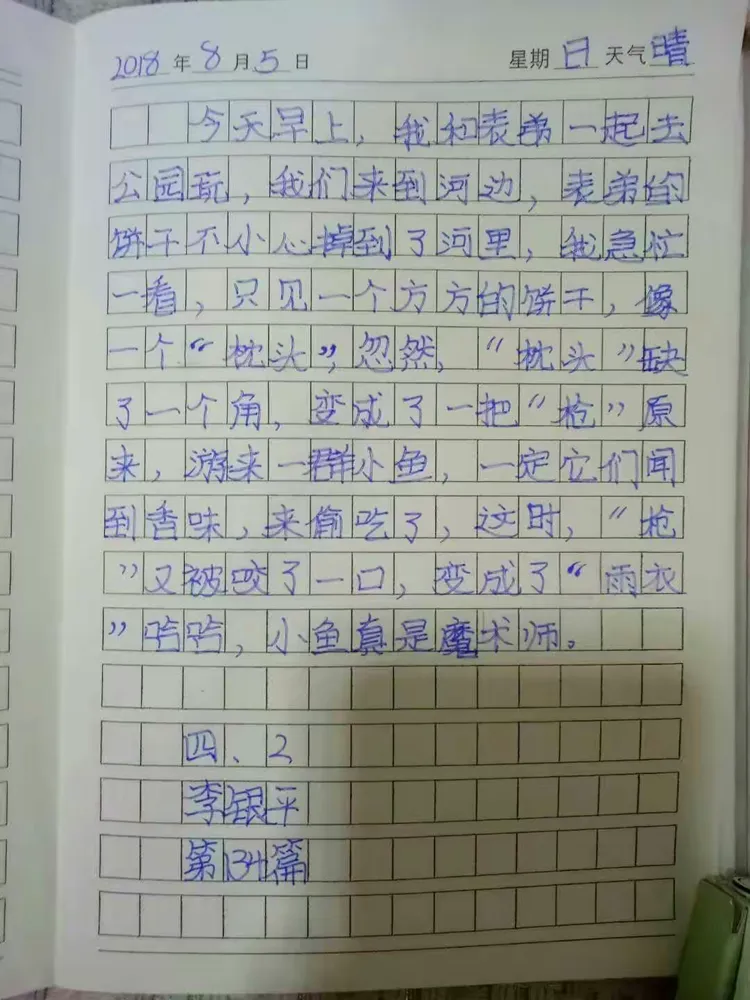 2018年8月5日 星期日 天气晴
今天早上，我和表弟一起去
公园玩，我们来到河边，表弟的
饼干不小心掉到了河里，我急忙
一看，只见一个方方的饼干，像
一个“枕头”，忽然，“枕头”缺
了一个角，变成了一把“枪”原
来，游来一群小鱼，一定它们闻
到香味，来偷吃了，这时，“枪
”又被咬了一口，变成了“雨衣
”哈哈，小鱼真是魔术师。
四、2
李银平
第134篇